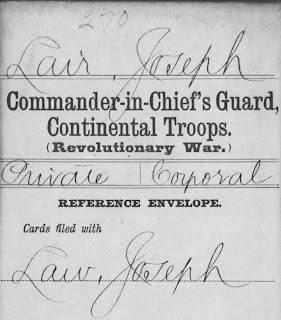 270
Lair, Joseph
Commander-in-Chief's Guard,
Continental Troops.
(Revolutionary War.)
Private | Corporal
REFERENCE ENVELOPE.
Cards filed with
Law, Joseph